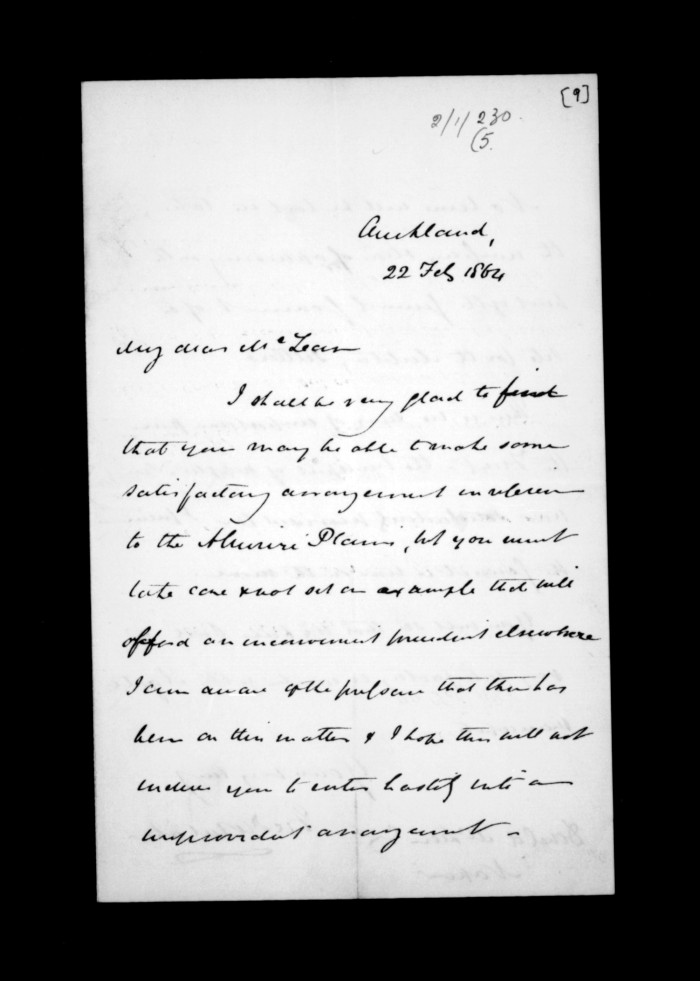 [9]
2/1/230.
(5.
Auckland,
22 Feb 1864
My dear McLean
I shall be very glad to find
that you may be able to make some
satisfactory arrangement in referen
to the Ahuriri Plains, but you must
take care & not set an example that will
afford an inconvenient precedent elsewhere
I am aware of the pressure that there has
been on this matter & I hope this will not
induce you to enter hastily into an
improvident arrangement -